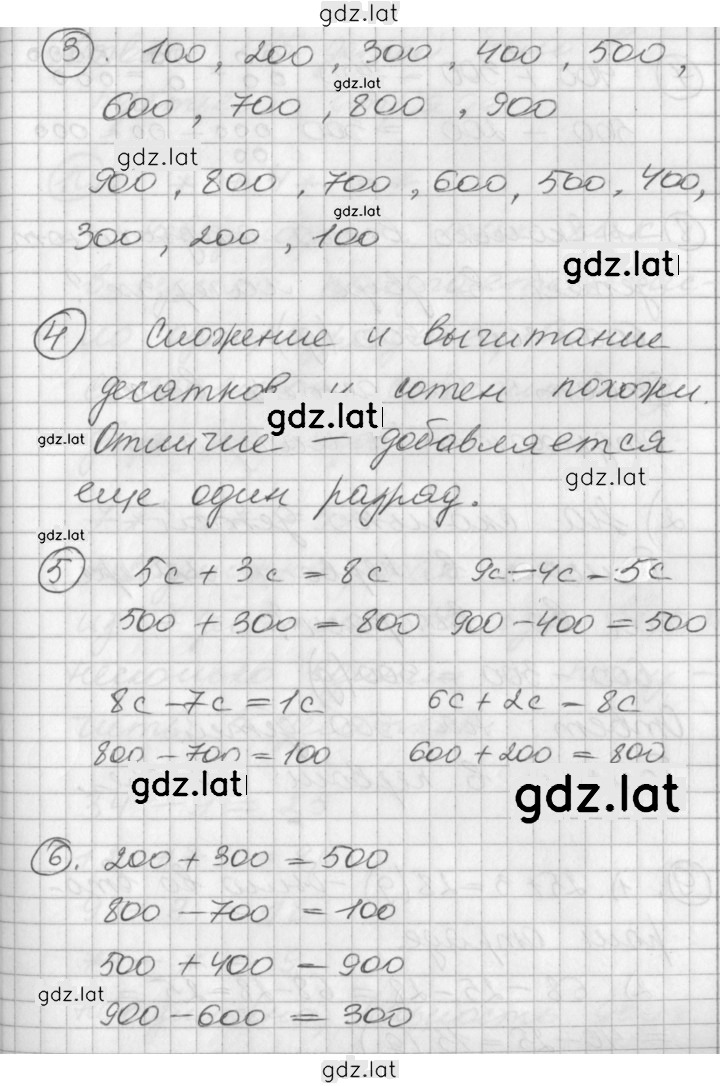 gdz.lat
3. 100, 200, 300, 400, 500,
gdz.lat
600, 700, 800, 900
gdz.lat
900, 800, 700, 600, 500, 400,
gdz.lat
300, 200, 100
gdz.lat
4 Сложение и вычитание
десятков и сотен похожи.
gdz.lat
gdz.lat
Отличие — добавляется
gdz.lat
еще один разряд.
gdz.lat
5 5с + 3с = 8с 9с - 4с = 5с
500 + 300 = 800 900 - 400 = 500
8с - 7с = 1с 6с + 2с = 8с
800 - 700 = 100 600 + 200 = 800
gdz.lat gdz.lat
6. 200 + 300 = 500
800 - 700 = 100
500 + 400 = 900
gdz.lat
900 - 600 = 300
gdz.lat